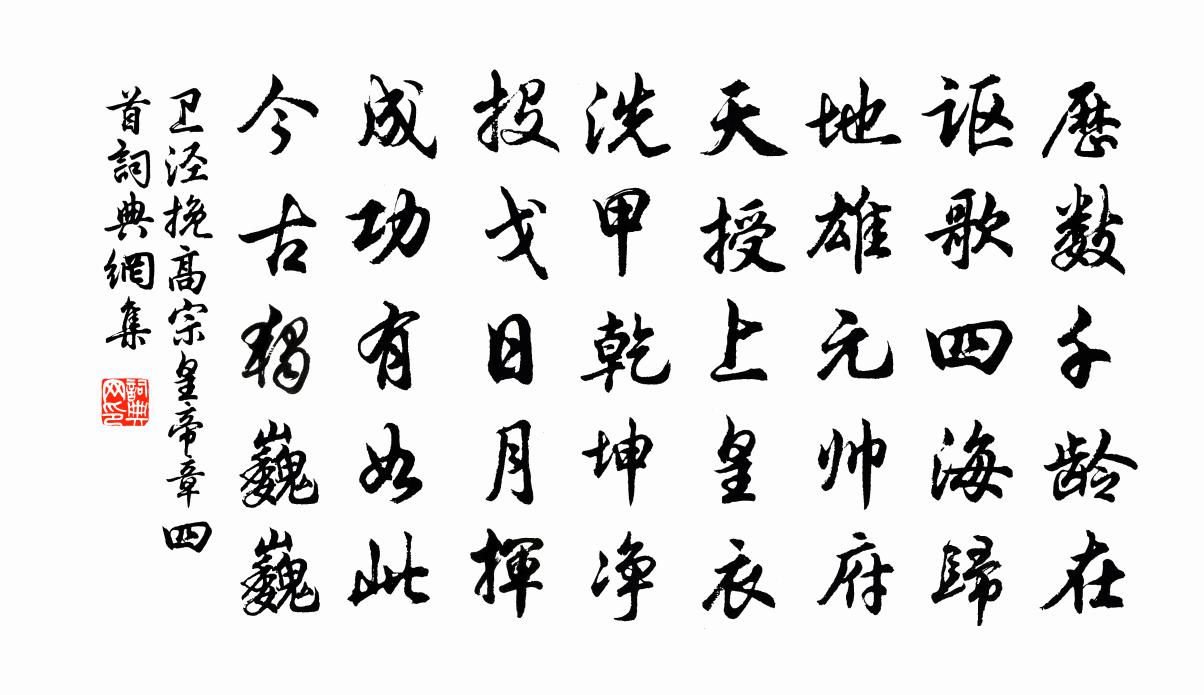 歷数千龄在
讴歌四海歸
地雄元帅府
天授上皇衣
洗甲乾坤净
投戈日月揮
成功有如此
今古独巍巍
卫泾挽高宗皇帝章四
首詞典網集
詞典
网印